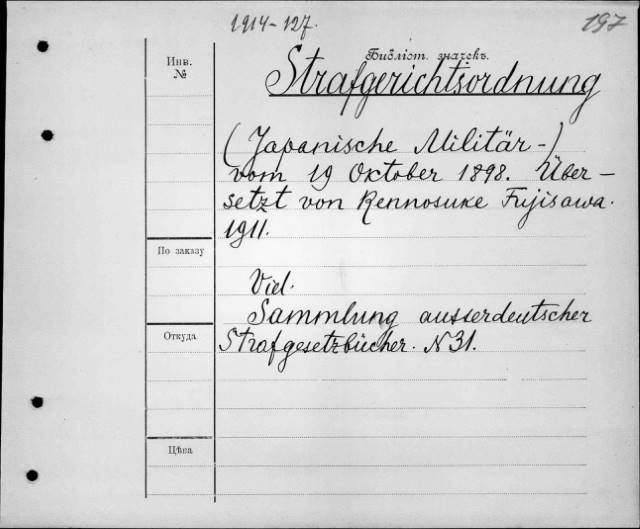 1914-127.
197
Библіот. значекъ.
Инв.
№
Strafgerichtsordnung
(Japanische Militär-)
vom 19 Oktober 1898. Über-
setzt von Kennosuke Fujisawa.
1911.
По заказу
Viel.
Sammlung ausserdeutscher
Откуда
Strafgesetzbücher. N 31.
Цѣна